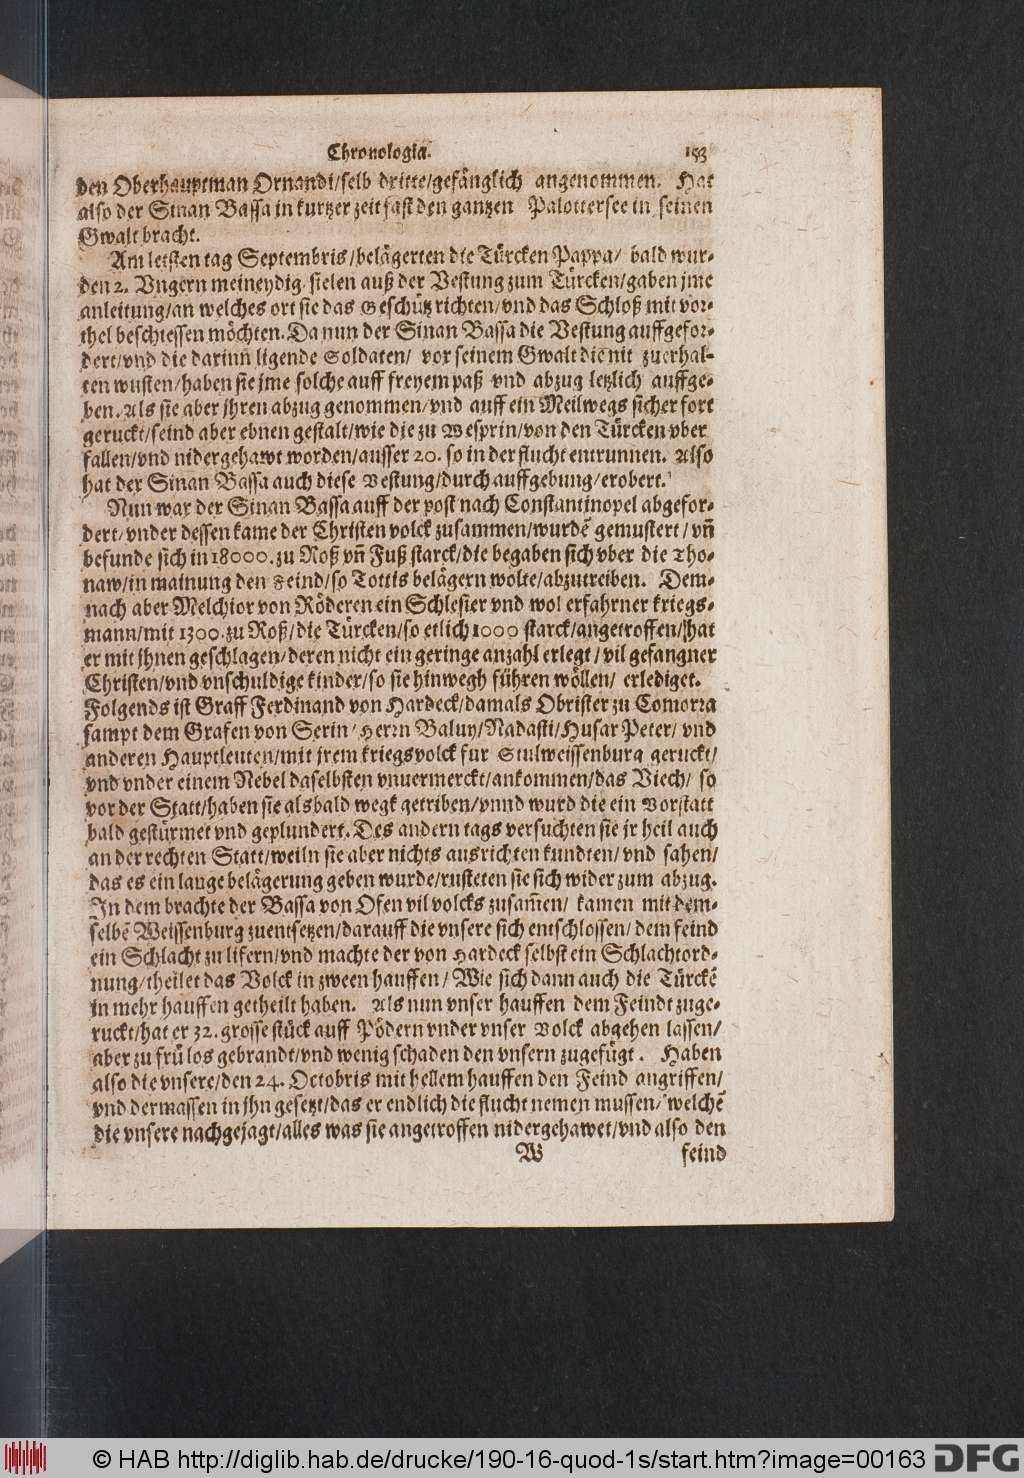 Chronologia. 153
den Oberhauptman Ornandi/selb dritte/gefänglich angenommen. Hat
also der Sinan Bassa in kurtzer zeit fast den gantzen Palottersee in seinen
Gwalt bracht.
Am letsten tag Septembris/belägerten die Türcken Pappa/ bald wur-
den 2. Vngern meineydig/fielen auß der Vestung zum Türcken/gaben jme
anleitung/an welches ort sie das Geschütz richten/vnd das Schloß mit vor-
thel beschiessen möchten. Da nun der Sinan Bassa die Vestung auffgefor-
dert/vnd die darinn ligende Soldaten/ vor seinem Gwalt die nit zuerhal-
ten wusten/haben sie jme solche auff freyem paß vnd abzug letzlich auffge-
ben. Als sie aber jhren abzug genommen/vnd auff ein Meilwegs sicher fort
geruckt/seind aber ebnen gestalt/wie die zu Wesprin/von den Türcken vber
fallen/vnd nidergehawt worden/ausser 20. so in der flucht entrunnen. Also
hat der Sinan Bassa auch diese Vestung/durch auffgebung/erobert.
Nun war der Sinan Bassa auff der post nach Constantinopel abgefor-
dert/vnder dessen kame der Christen volck zusammen/wurdē gemustert/ vn̄
befunde sich in 18000. zu Roß vn̄ Fuß starck/die begaben sich vber die Tho-
naw/in mainung den Feind/so Tottis belägern wolte/abzutreiben. Dem-
nach aber Melchior von Röderen ein Schlesier vnd wol erfahrner kriegs-
mann/mit 1300. zu Roß/die Türcken/so etlich 1000 starck/angetroffen/hat
er mit jhnen geschlagen/deren nicht ein geringe anzahl erlegt/ vil gefangner
Christen/vnd vnschuldige kinder/so sie hinwegh führen wöllen/ erlediget.
Folgends ist Graff Ferdinand von Hardeck/damals Obrister zu Comorra
sampt dem Grafen von Serin/ Herrn Baluy/Nadasti/Husar Peter/ vnd
anderen Hauptleuten/mit jrem kriegsvolck fur Stulweissenburg geruckt/
vnd vnder einem Nebel daselbsten vnuermerckt/ankommen/das Viech/ so
vor der Statt/haben sie alsbald wegk getriben/vnnd wurd die ein Vorstatt
bald gestürmet vnd geplundert. Des andern tags versuchten sie jr heil auch
an der rechten Statt/weiln sie aber nichts ausrichten kundten/ vnd sahen/
das es ein lange belägerung geben wurde/rusteten sie sich wider zum abzug.
In dem brachte der Bassa von Ofen vil volcks zusam̄en/ kamen mit dem-
selbē Weissenburg zuentsetzen/darauff die vnsere sich entschlossen/ dem feind
ein Schlacht zu lifern/vnd machte der von Hardeck selbst ein Schlachtord-
nung/theilet das Volck in zween hauffen/ Wie sich dann auch die Türckē
in mehr hauffen getheilt haben. Als nun vnser hauffen dem Feindt zuge-
ruckt/hat er 32. grosse stück auff Pödern vnder vnser Volck abgehen lassen/
aber zu frü los gebrandt/vnd wenig schaden den vnsern zugefügt. Haben
also die vnsere/den 24. Octobris mit hellem hauffen den Feind angriffen/
vnd dermassen in jhn gesetzt/das er endlich die flucht nemen mussen/ welchē
die vnsere nachgejagt/alles was sie angetroffen nidergehawet/vnd also den
W feind
© HAB http://diglib.hab.de/drucke/190-16-quod-1s/start.htm?image=00163 DFG